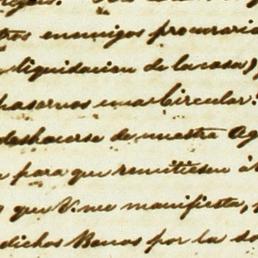 tros enemigos procurario
liquidacion de la casa),
pasernos una Circular:
deshacerse de nuestra Ag
para que remitiesen á
que V. me manifiesta,
dichos Banos por la do